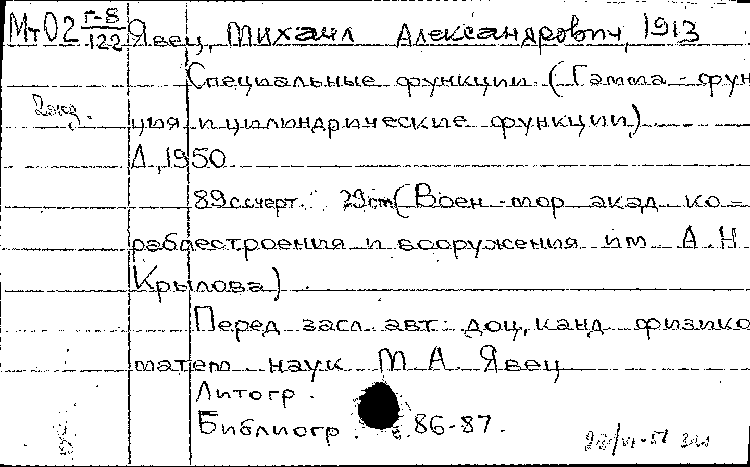 МтО2 Г-8/122 Явец, Михаил Александрович, 1913
Специальные функции (Гамма-фун
2экз.
ция и цилиндрические функции)
Л., 1950
89с. с черт. 29см (Воен-мор акад ко-
раблестроения и вооружения им А. Н
Крылова)
Перед загл. авт: доц, канд физико
матем наук М А Явец
Литогр.
Библиогр. с. 86-87.